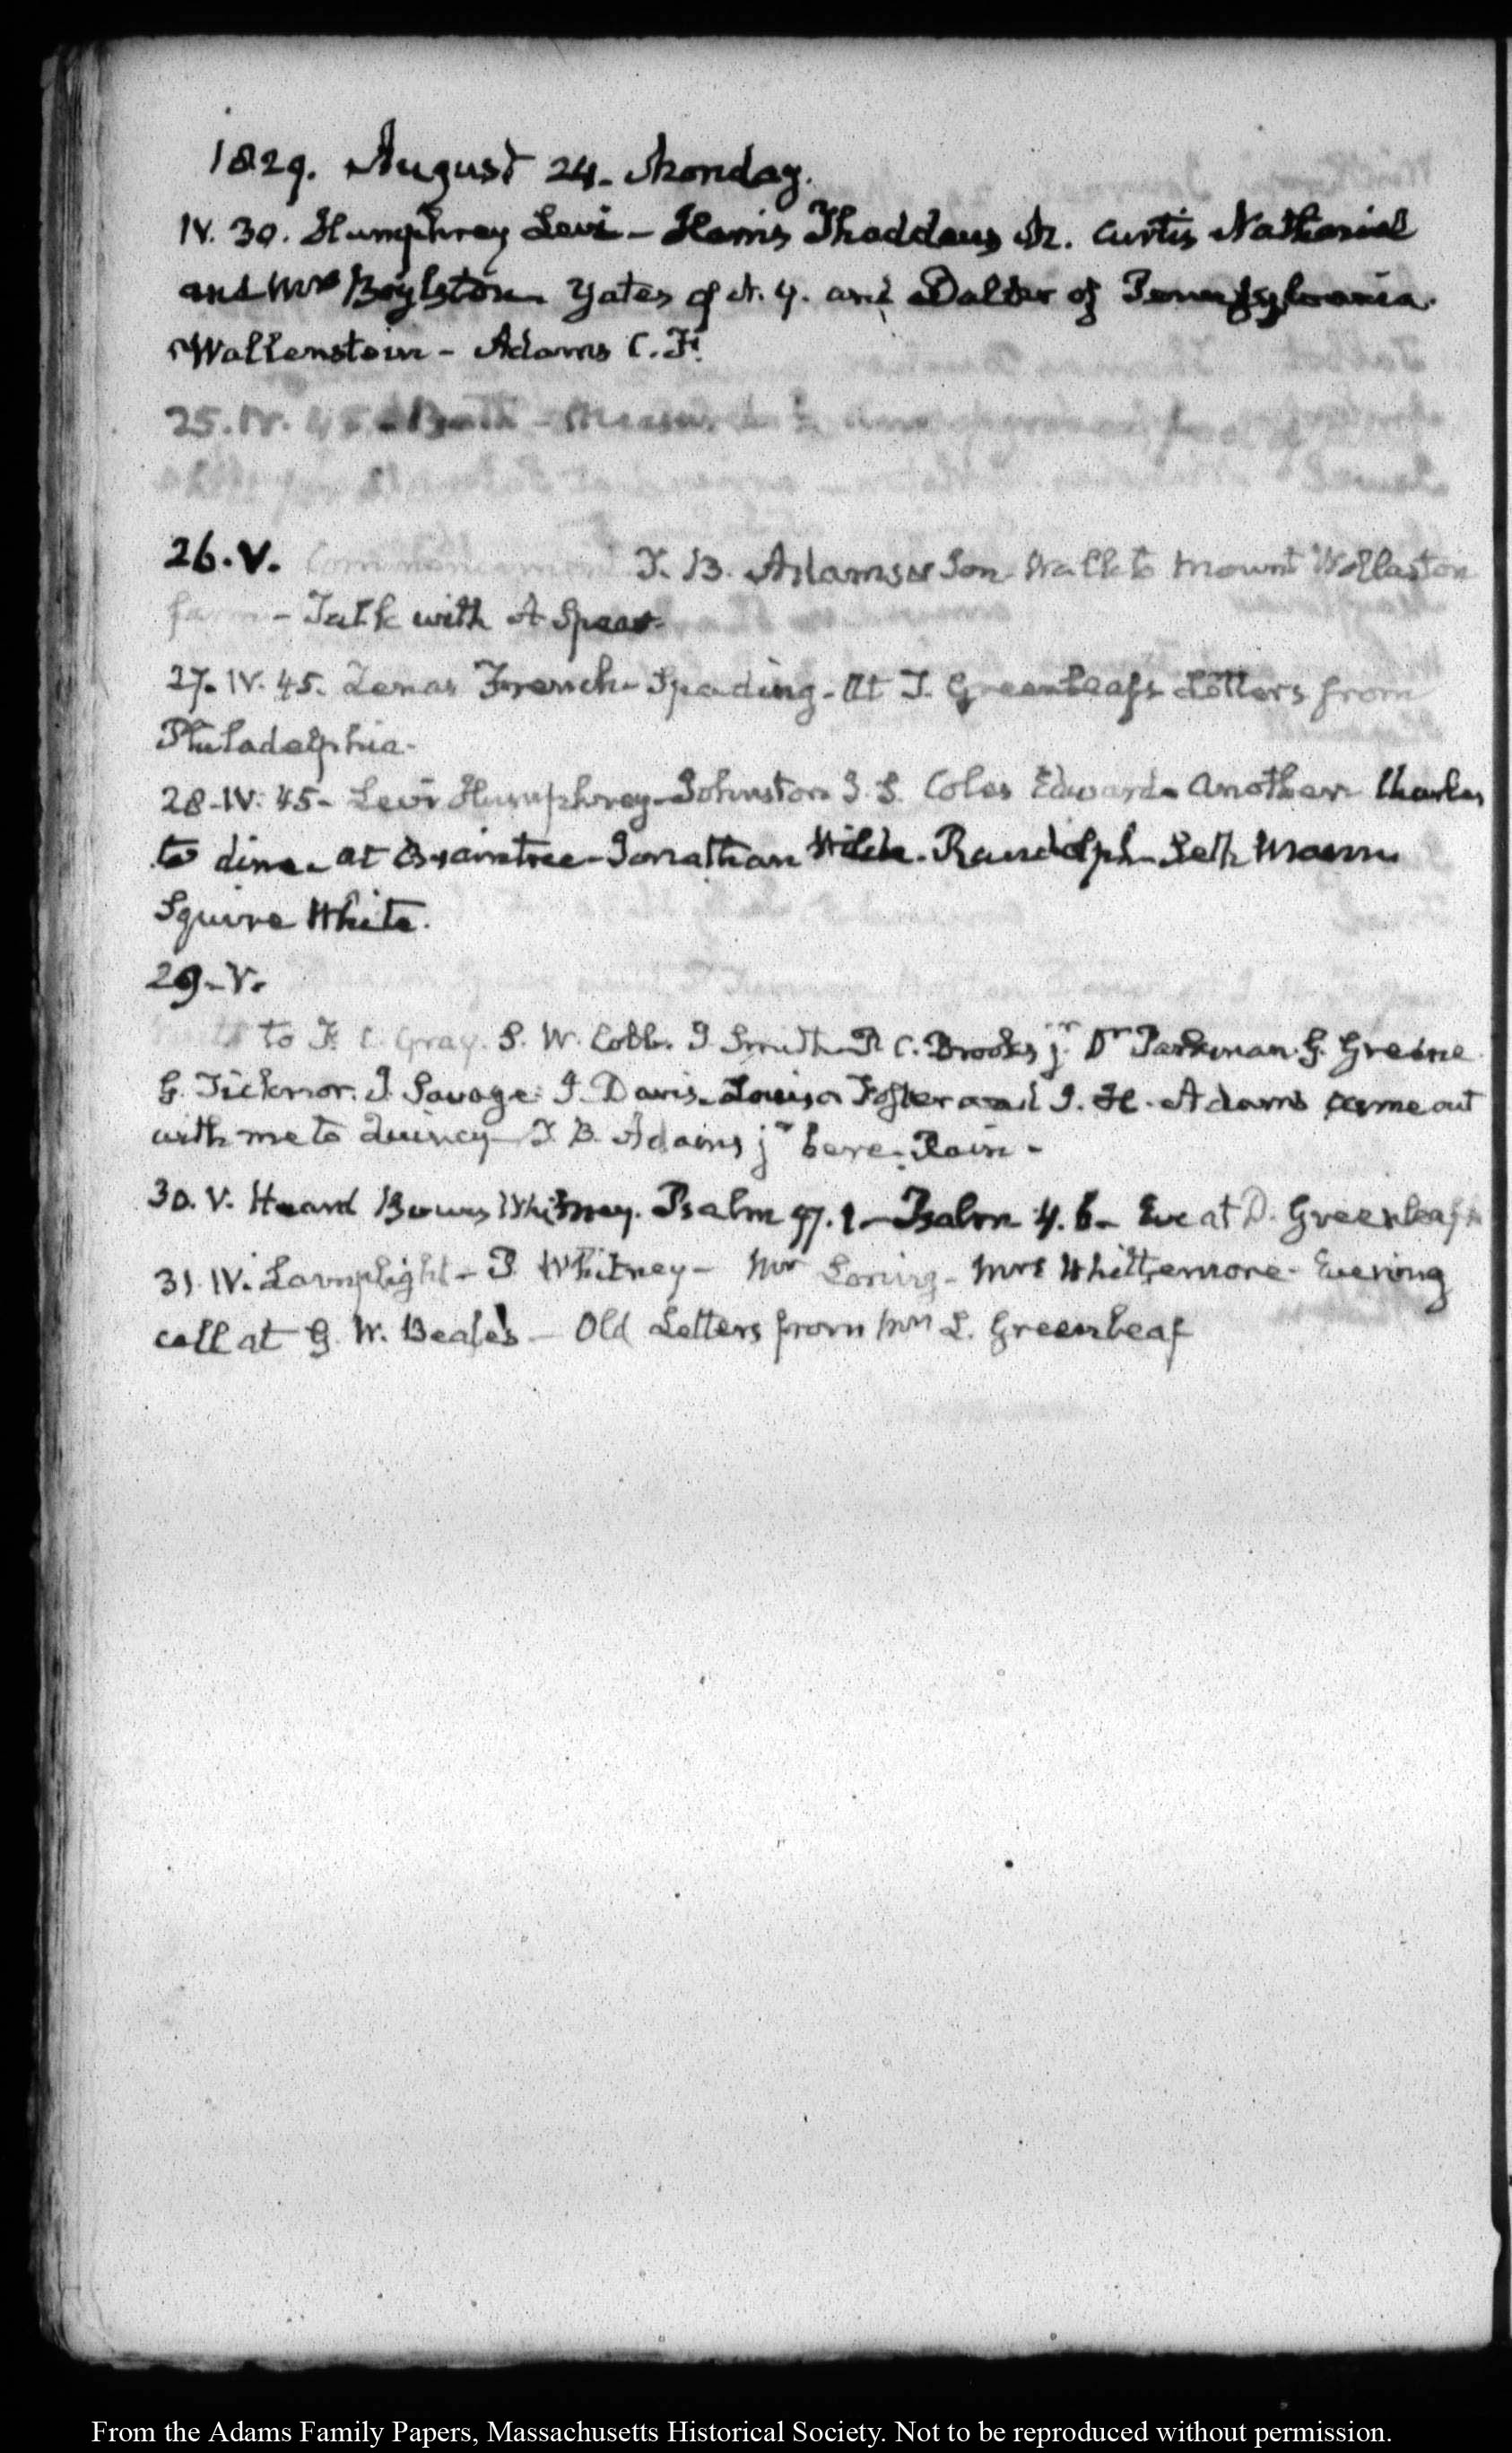 1829. August 24. Monday.
IV. 30. Humphrey Levi - Harris Thaddeus M. Curtis Nathaniel
and Mrs Boylston Yates of N. Y. and of Pennsylvania.
Wallenstein - Adams C. F.
25. IV. 45 - Bath -
26. V. Commencement T. B. Adams Son Walk to Mount Wollaston
farm - Talk with A Spear
27. IV. 45. Lenas French - Spading - At T. Greenleafs Letters from
Philadelphia -
28. IV. 45 - Levi Humphrey - Johnston J. S. Coles Edward - another Charles
to dine - at Braintree - Jonathan Wilde - Randolph - Seth Mann
Squire White.
29 - V.
to F. C. Gray. S. W. Cobb. J Smith P. C. Brooks jr Dr Parkman. G. Greene
G. Ticknor. J. Savage. J. Davis. Louisa Foster and J. H. Adams came out
with me to Quincy - T. B. Adams jr here - Rain -
30. V. Heard Whitney. Psalm 97. 1 - Psalm 4. 6 - Eve at D. Greenleafs
31. IV. Lamplight - P Whitney - Mr Loring - Mrs Whittemore - Evening
call at G. W. Beale's - Old Letters from Mrs L. Greenleaf
From the Adams Family Papers, Massachusetts Historical Society. Not to be reproduced without permission.